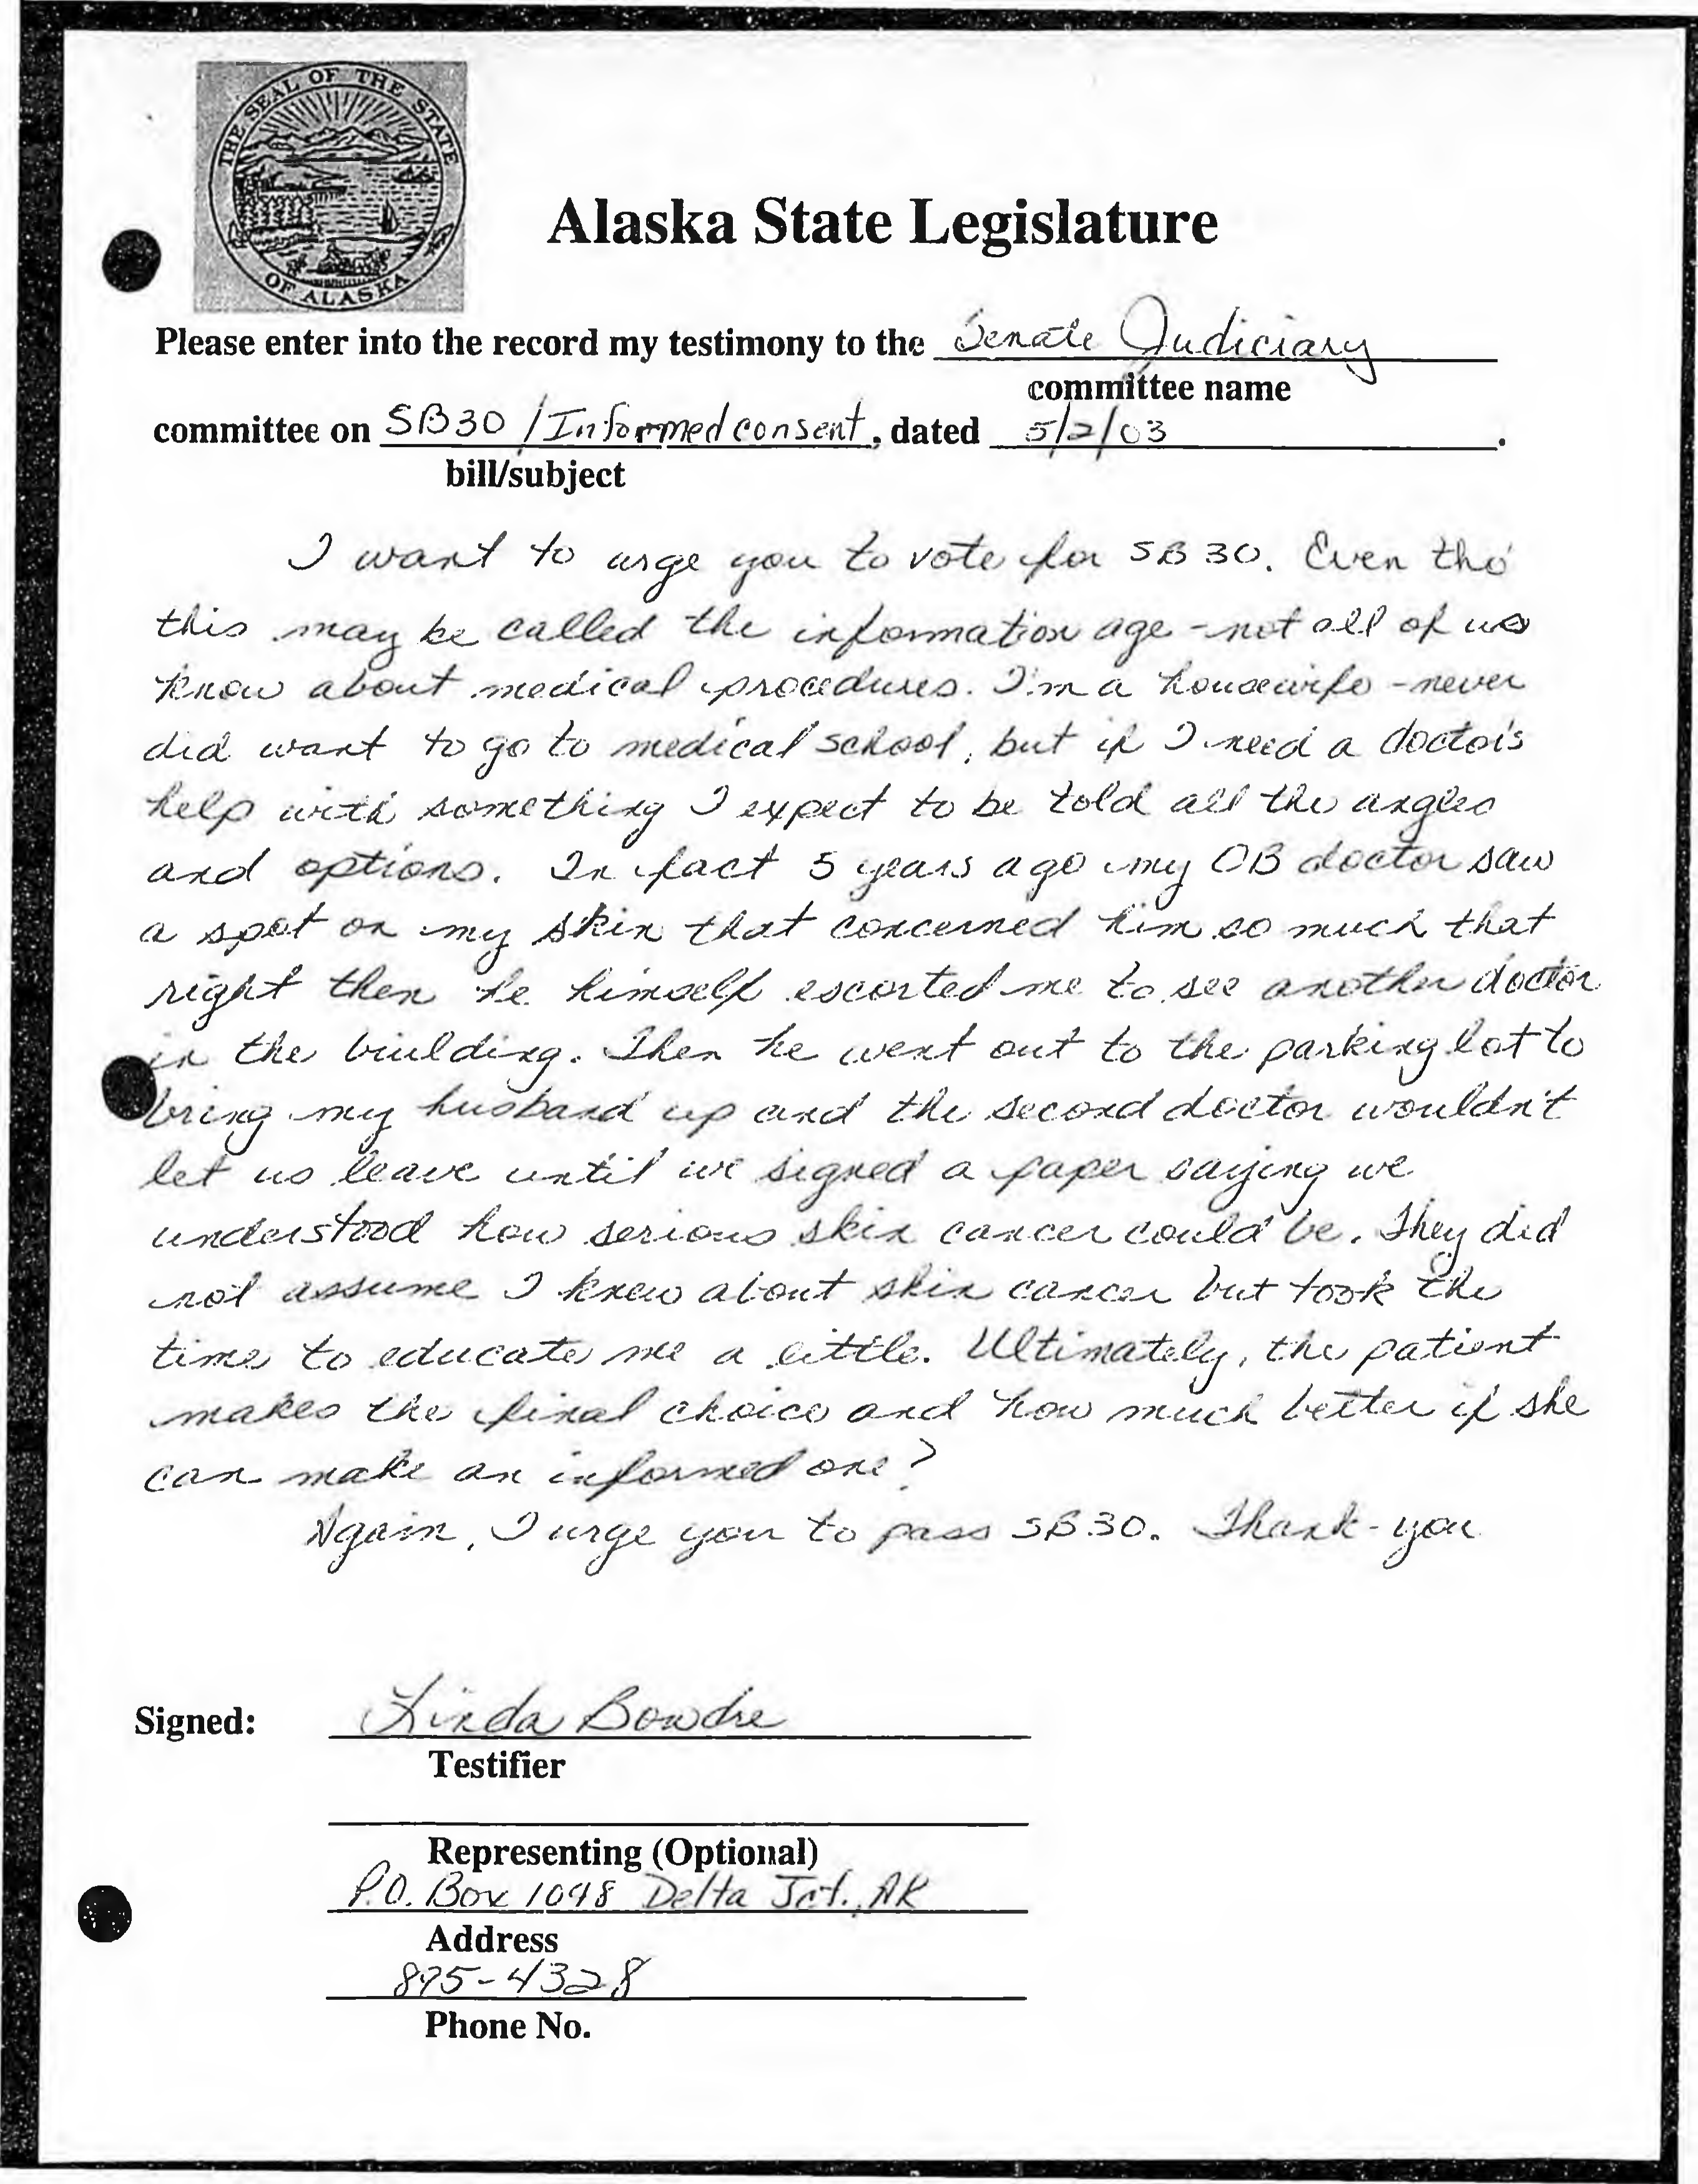 THE SEAL OF THE STATE
OF ALASKA
Alaska State Legislature
Please enter into the record my testimony to the Senate Judiciary
committee name
committee on SB30 / Informed consent, dated 5/2/03.
bill/subject
I want to urge you to vote for SB 30. Even tho'
this may be called the information age - not all of us
know about medical procedures. I'm a housewife - never
did want to go to medical school, but if I need a doctor's
help with something I expect to be told all the angles
and options. In fact 5 years ago my OB doctor saw
a spot on my skin that concerned him so much that
right then he himself escorted me to see another doctor
in the building. Then he went out to the parking lot to
bring my husband up and the second doctor wouldn't
let us leave until we signed a paper saying we
understood how serious skin cancer could be. They did
not assume I knew about skin cancer but took the
time to educate me a little. Ultimately, the patient
makes the final choice and how much better if she
can make an informed one?
Again, I urge you to pass SB30. Thank-you
Signed: Linda Bowdre
Testifier
Representing (Optional)
P.O. Box 1048 Delta Jct., AK
Address
895-4328
Phone No.